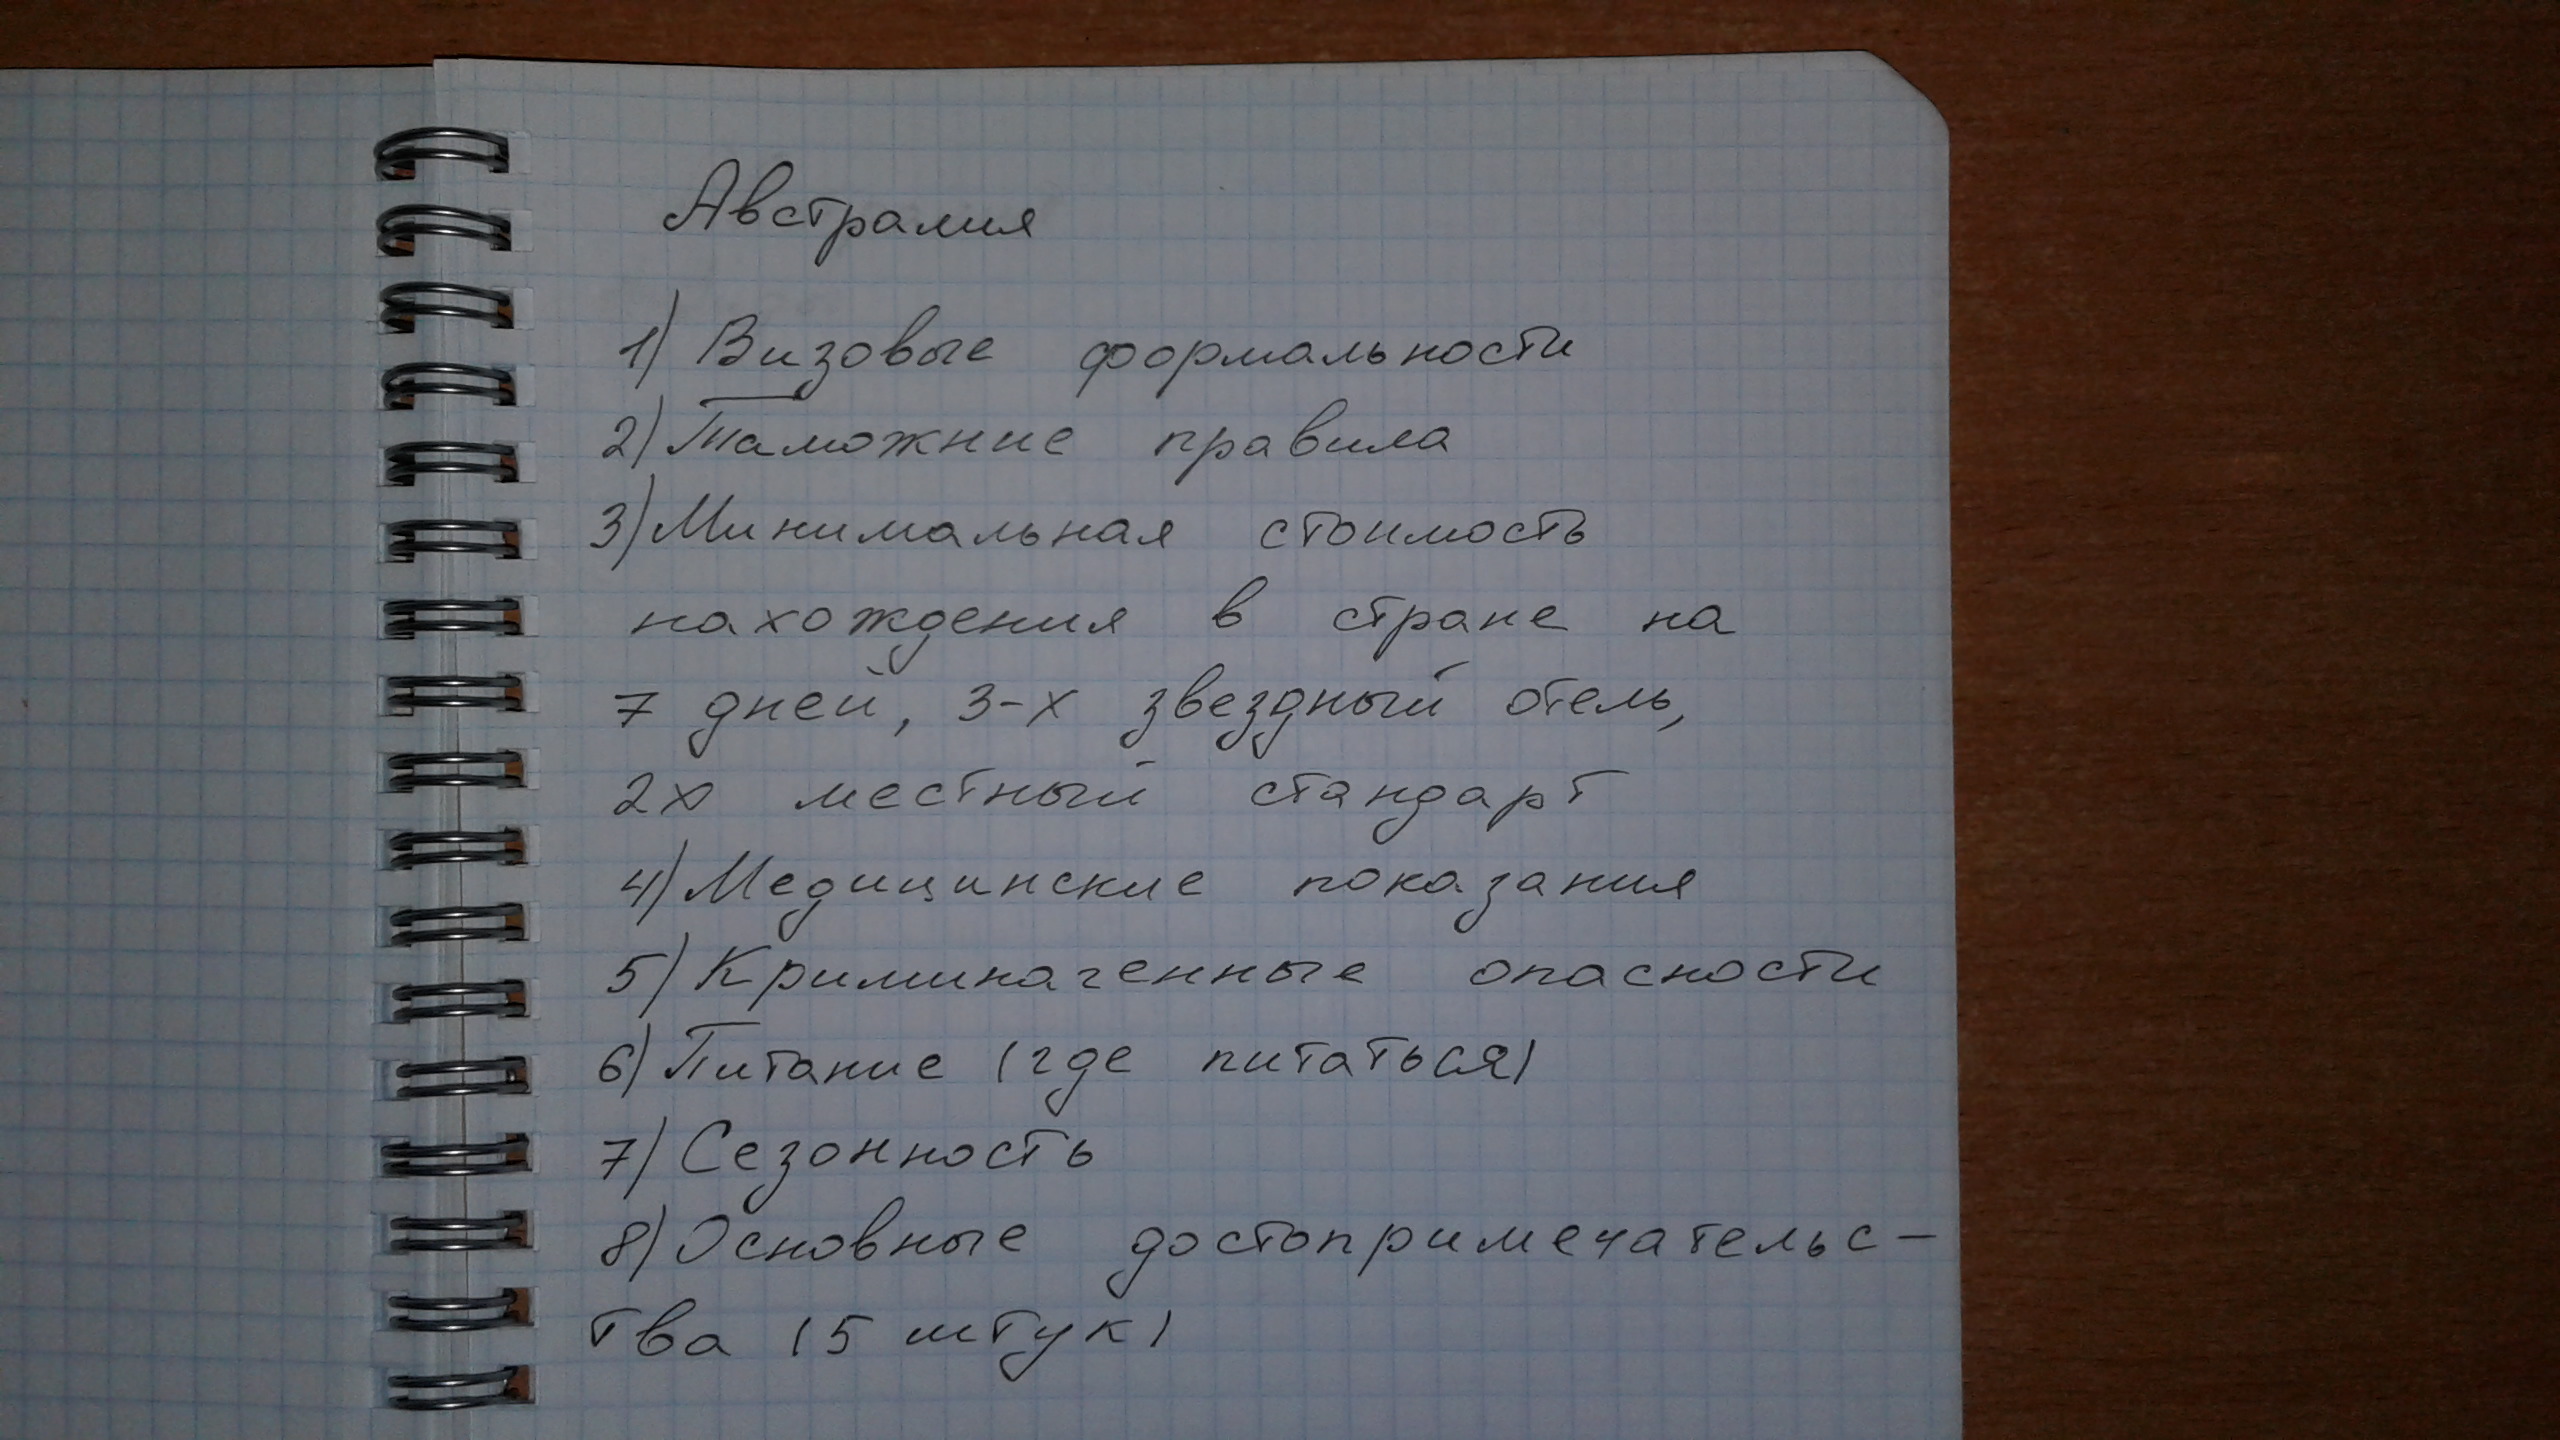 Австралия
1) Визовые формальности
2) Таможние правила
3) Минимальная стоимость
нахождения в стране на
7 дней, 3-х звездный отель,
2х местный стандарт
4) Медицинские показания
5) Криминагенные опасности
6) Питание (где питаться)
7) Сезонность
8) Основные достопримечательс-
тва (5 штук)